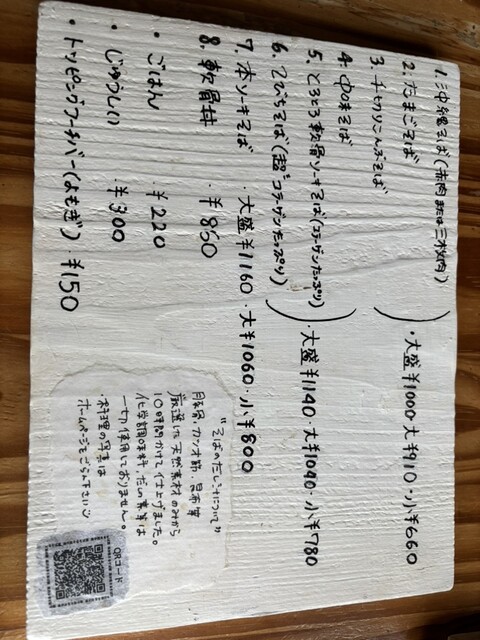 1. 沖縄そば(赤肉または三枚肉)
2. たまごそば
3. 千切りこんぶそば
・大盛¥1000・大¥910・小¥660
4. 中味そば
5. とろとろ軟骨ソーキそば(コラーゲンたっぷり)
6. てびちそば(超"コラーゲンたっぷり)
・大盛¥1140・大¥1040・小¥780
7. 本ソーキそば ・大盛¥1160・大¥1060・小¥800
8. 軟骨丼 ・¥860
・ごはん ¥220
・じゅうしい ・¥300
・トッピングフーチバー(よもぎ) ¥150
"そばのだし汁について"
豚骨・カツオ節・昆布等
厳選した天然素材のみから
10時間かけて仕上げました。
化学調味料、だしの素等は
一切使用しておりません。
・料理の写真は
ホームページをご覧下さい
QRコード